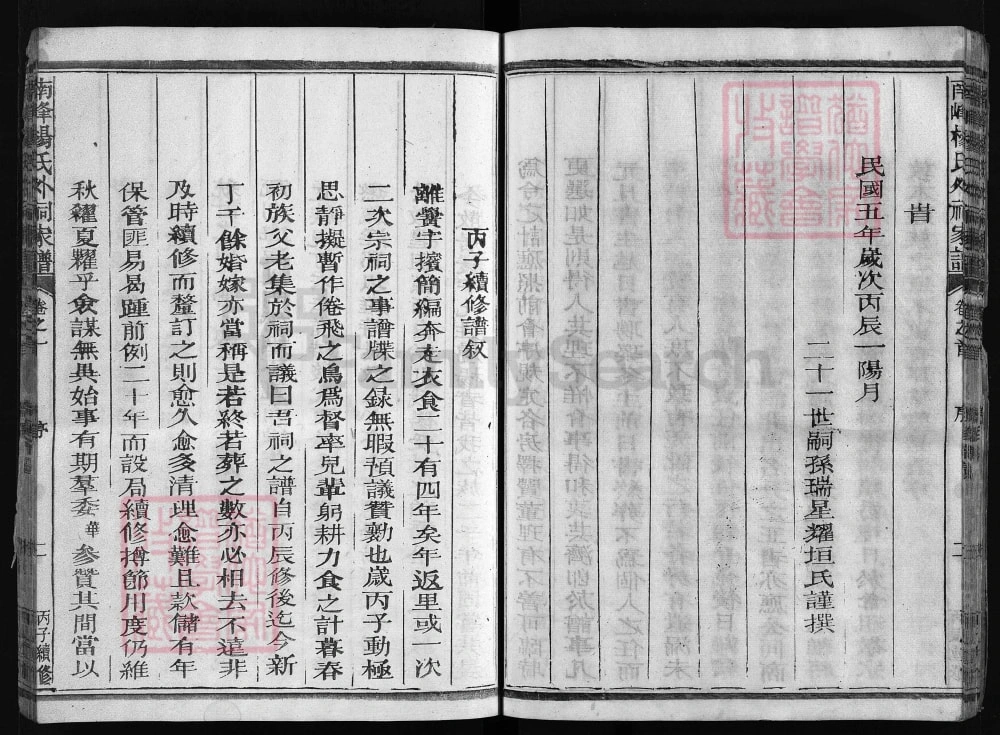 旹
民國五年歲次丙辰一陽月
二十一世嗣孫瑞星耀垣氏謹撰
南峰楊氏外祠家譜
卷之首
序
二
丙子續修譜敘
離黌宇擯簡編奔走衣食二十有四年矣年返里或一次
二次宗祠之事譜牒之録無暇預議贊勷也歲丙子動極
思靜擬暫作倦飛之鳥爲督率兒輩躬耕力食之計暮春
初族父老集於祠而議曰吾祠之譜自丙辰修後迄今新
丁千餘婚嫁亦當稱是若終若葬之數亦必相去不遠非
及時續修而釐訂之則愈久愈多清理愈難且款儲有年
保管匪易曷踵前例二十年而設局續修撙節用度仍維
秋糴夏糶乎僉謀無異始事有期羣委華參贊其間當以
南峰楊氏外祠家譜
卷之一
序
一
丙子續修
FamilySearch